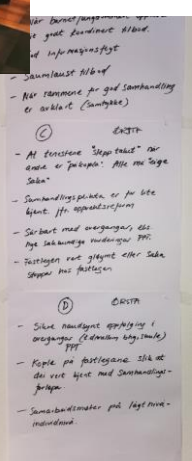 Når barnet/ungdommen
eit godt koordinert tilbod.
God informasjonsflyt
- Saumlaust tilbod
- Når rammene for god samhandling
er avklart (samtykke)
C ØRSTA
- At tenestene "slepp taket" når
andre er "påkopla". Alle må "eige
saka"
- Samhandlingsplikta er for lite
kjent. Jfr. oppvekstreform
- Sårbart med overgangar,
sakkunnige vurderingar PPT.
- Fastlegen vert gløymt eller saka
stoppar hos fastlegen
D ØRSTA
- Sikre naudsynt oppfølging i
overgangar (bhg, skule)
PPT
- Kopie på fastlegane slik at
dei vert kjent med samhandlings-
forløpa.
- Samarbeidsmøter på lågt nivå -
individnivå.